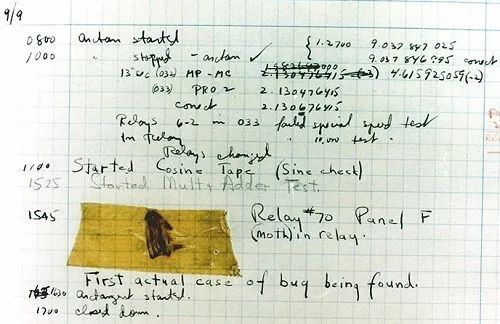 9/9
0800 antan started { 1.2700 9.037 847 025
1000 " stopped - antan ✓ 9.037 846 795 conect
13"uc (032) MP-MC 2.130476415 (-3) 4.615925059(-2)
(033) PRO 2 2.130476415
conect 2.130676415
Relays 6-2 in 033 failed special speed test
In Relay " 10,000 test.
Relays changed
1100 Started Cosine Tape (Sine check)
1525 Started Mult+ Adder Test.
1545 Relay #70 Panel F
(Moth) in relay.
First actual case of bug being found.
1630 antangent started.
1700 closed down.